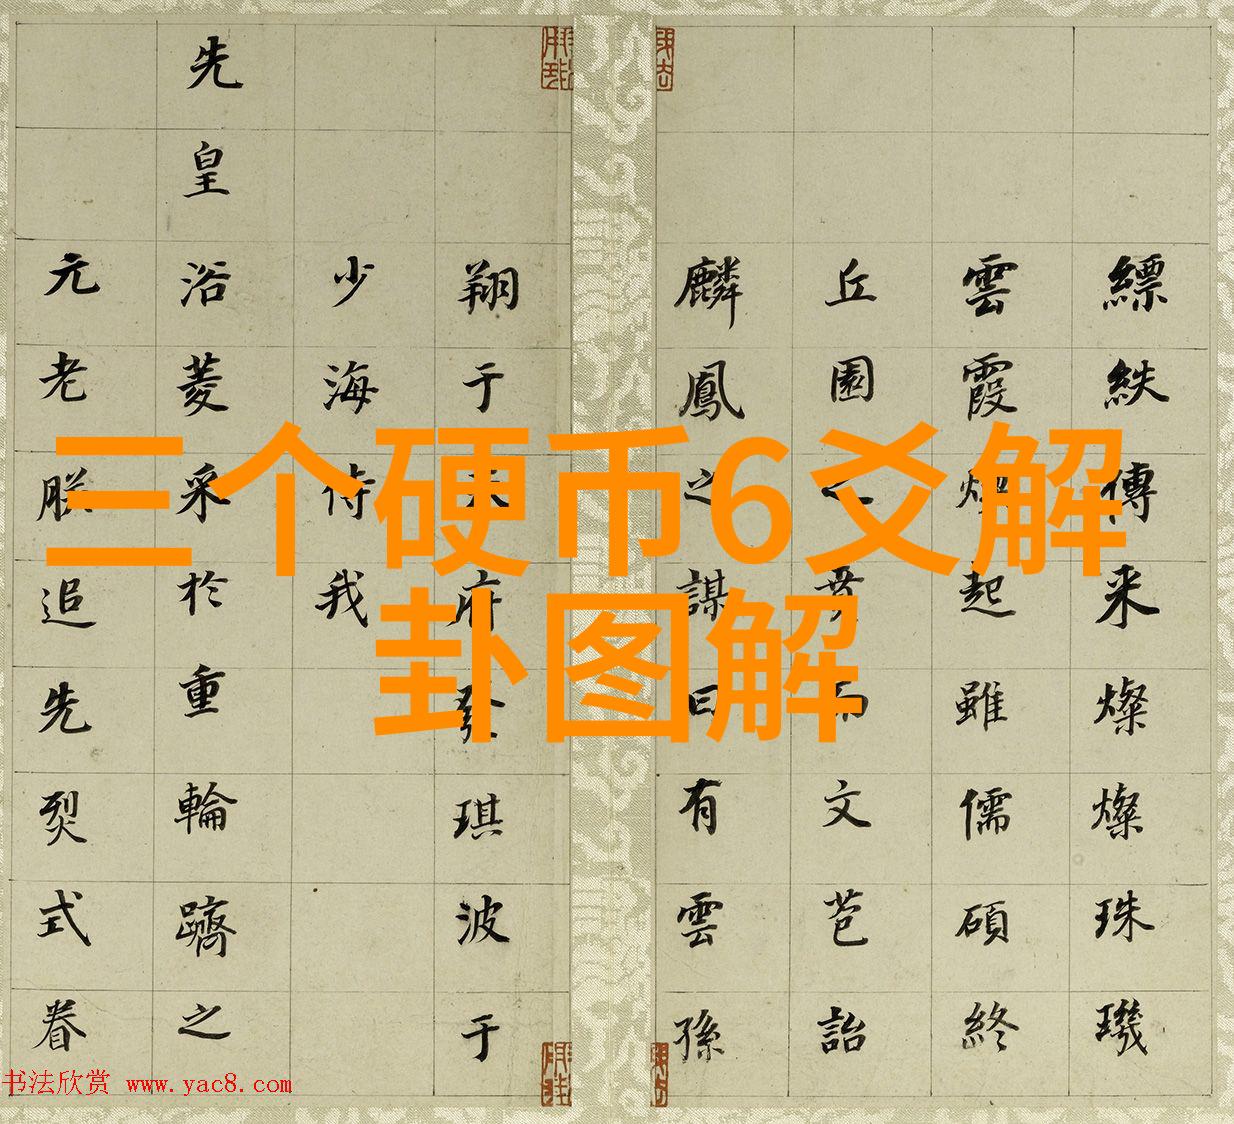 三个硬币6爻解
卦图解
縹紩傳来燦燦珠璣
雲霞起雖儒碩終
丘園之賁而文芭詒
麟鳳之謀曰有雲孫
翔于天府發琪波于
少海侍我
先皇浴菱采於重輪躋之
元老朕追先烈式眷
书法欣赏 www.yac8.com